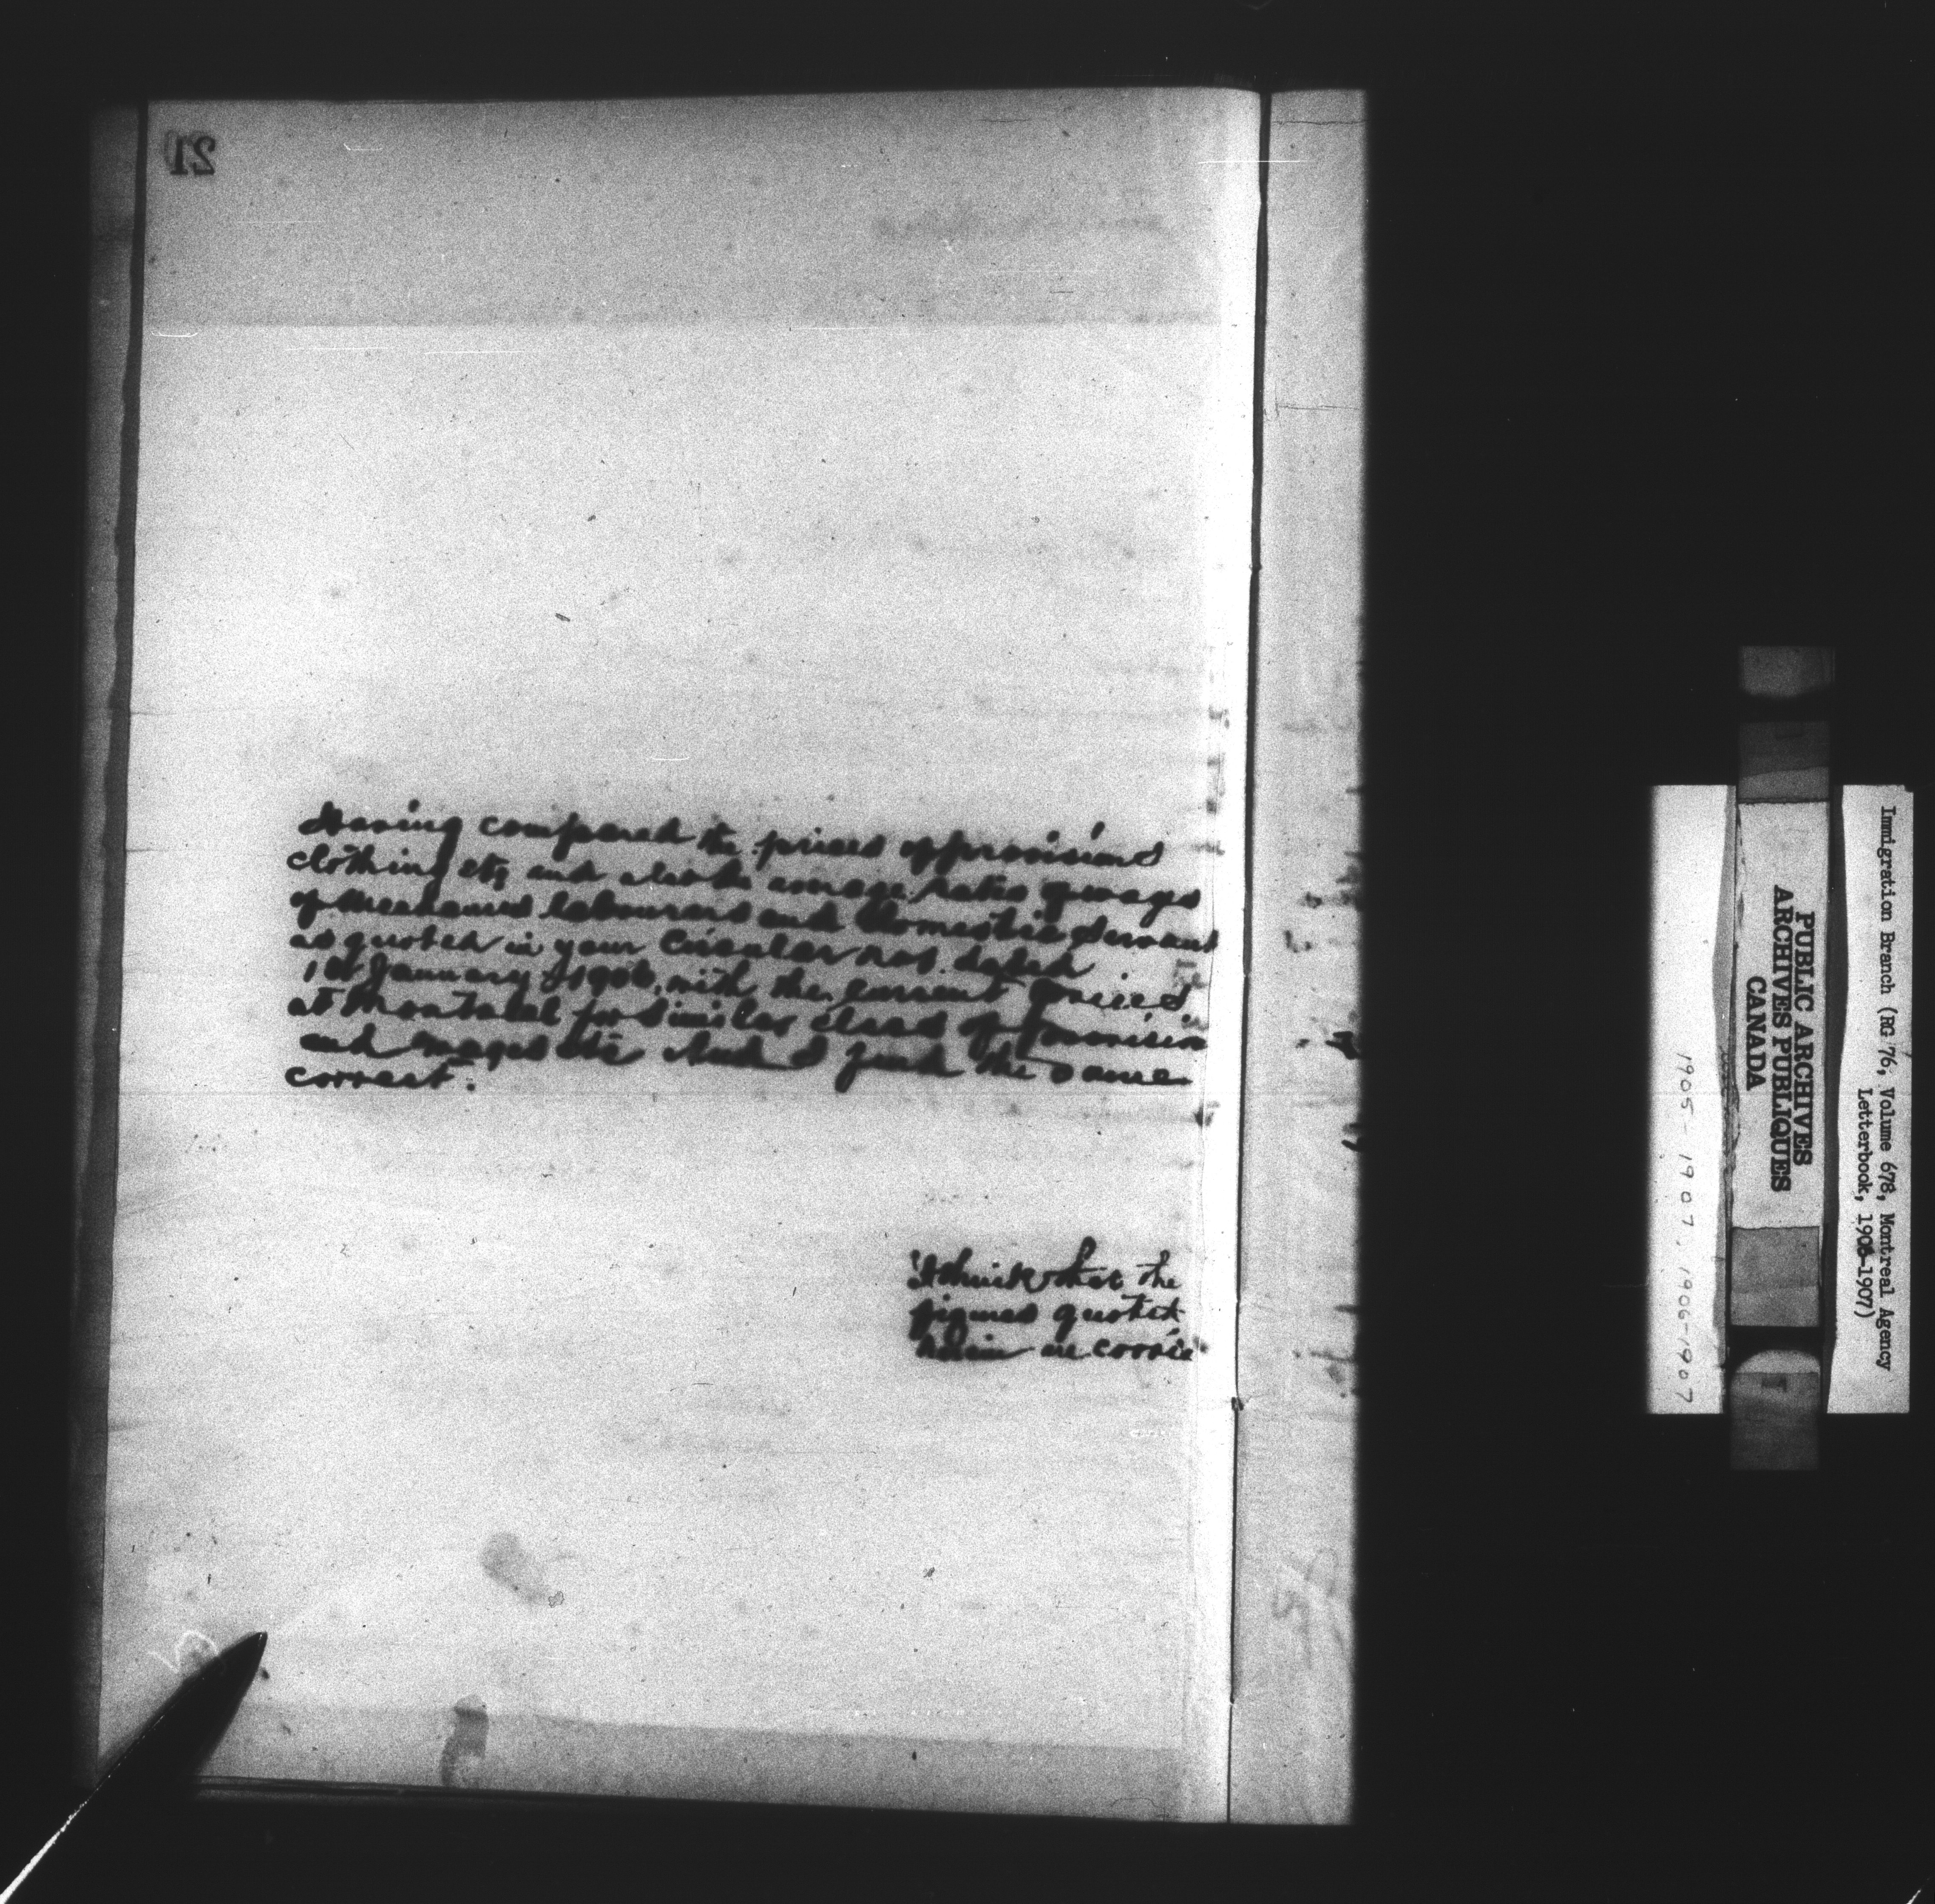 21
Having compared the prices of provisions
clothing etc and also the average rates of wages
of Mechanics labourers and Domestic Servant
as quoted in your Circular dated
1st January 1906, with the current prices
at Montreal for similar class of provision
and wages etc And I find the same
correct.
I think that the
figures quoted
herein are correc
PUBLIC ARCHIVES
ARCHIVES PUBLIQUES
CANADA
Immigration Branch (RG 76, Volume 678, Montreal Agency
Letterbook, 1905-1907)
1905-1907, 1906-1907